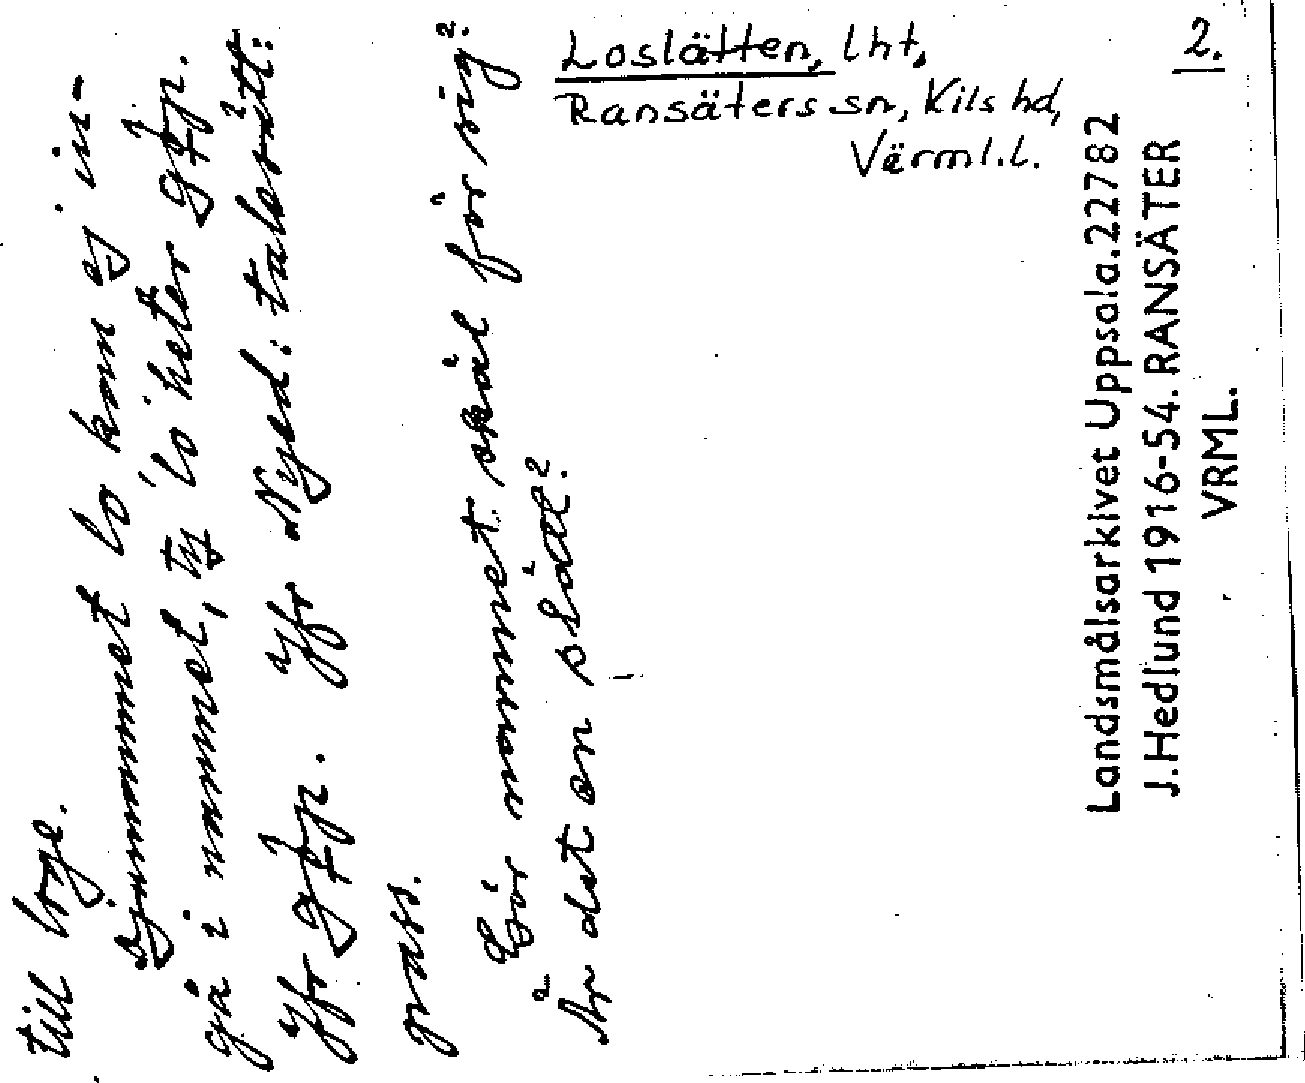 Loslätten, lht,
Ransäters sn, Kils hd,
Värml. l.
2.
till loge.
Sjönamnet Lo kan ej in-
gå i namnet, ty Lo heter
Jfr Jfr Nyed:
grass.
Gör namnet skäl för sig?
Är det en slät?
Landsmålsarkivet Uppsala. 22782
J. Hedlund 1916-54. RANSÄTER
VRML.